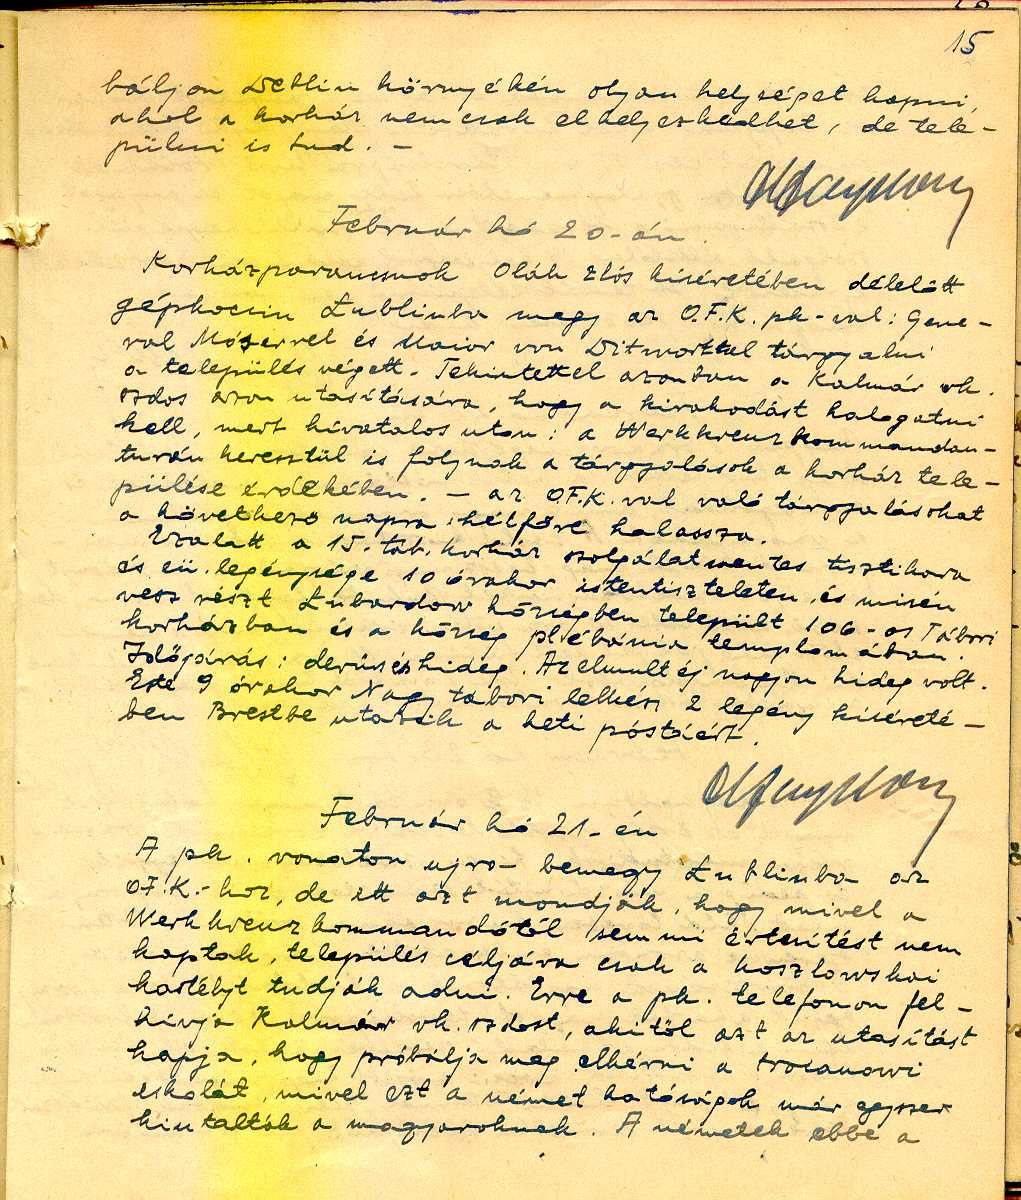 15
báljon Deblin környékén olyan helységet kapni,
ahol a korház nemcsak elhelyezkedhet, de tele-
pülni is tud. -
Február hó 20-án.
Korházparancsnok Oláh zlós kiséretében délelőtt
gépkocsin Lublinba megy az O.F.K. pk-val: Gene-
ral Mózerrel és Maior von Ditmarttal tárgyalni
a település végett. Tekintettel azonban a Kalmár vk.
szdos azon utasítására, hogy a kirakodást halogatni
kell, mert hivatalos uton: a Werkkreuz Kommandan-
turán keresztül is folynak a tárgyalások a korház tele-
pülése érdekében. - az O.F.K. val való tárgyalásokat
a következő napra: hétfőre halassza.
Ezalatt a 15. táb. korház szolgálatmentes tisztikara
és eü. legénysége 10 órakor istentiszteleten, és misén
vesz részt Lubardow községben települt 106-os Tábori
korházban és a község plébánia templomában.
Időjárás: derüs és hideg. Az elmult éj nagyon hideg volt.
Este 9 órakor Nagy tábori lelkész 2 legény kiséreté-
ben Brestbe utazik a heti póstáért.
Február hó 21-én
A pk. vonaton ujra bemegy Lublinba az
O.F.K.-hoz, de itt azt mondják, hogy mivel a
Werkkreuzkommandótól semmi értesítést nem
kaptak, település céljára csak a koszlowskai
kastélyt tudják adni. Erre a pk. telefonon fel-
hivja Kalmár vk. szdost, akitől azt az utasítást
kapja, hogy próbálja meg elkérni a trocanowi
iskolát, mivel ezt a német hatóságok már egyszer
kiutalták a magyaroknak. A németek ebbe a